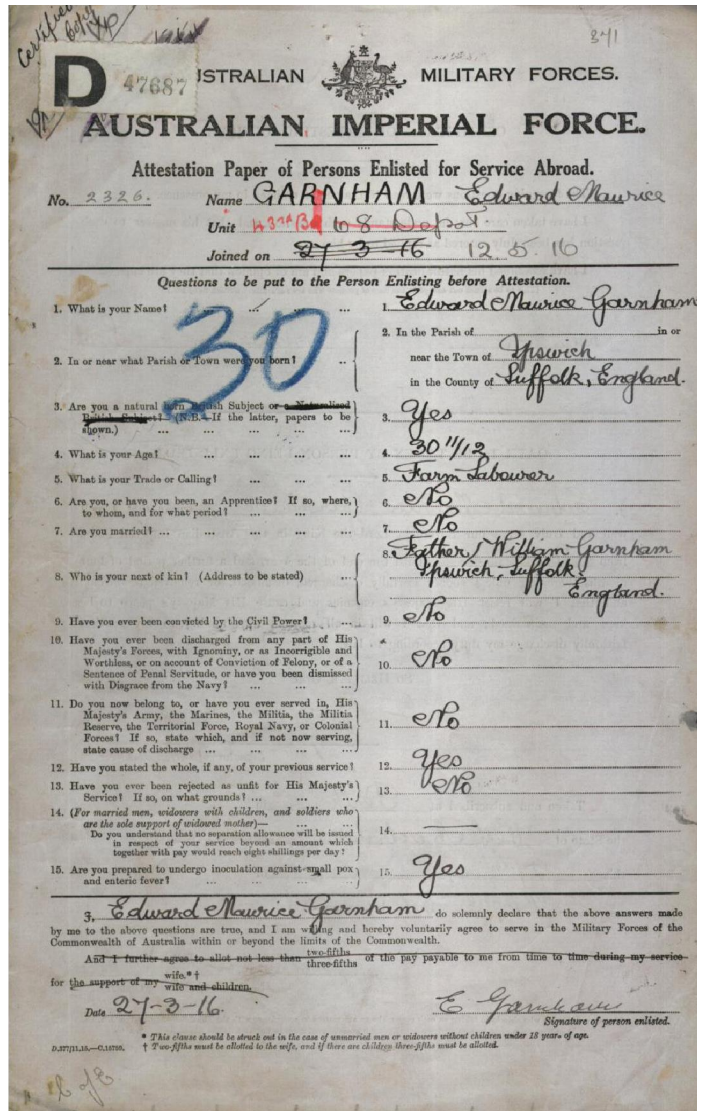 Certified Copy
341
D 47687
USTRALIAN MILITARY FORCES.
AUSTRALIAN IMPERIAL FORCE.
Attestation Paper of Persons Enlisted for Service Abroad.
No. 2326. Name GARNHAM Edward Maurice
Unit 43rd B 68 Depot
Joined on 27-3-16 12.5.16
Questions to be put to the Person Enlisting before Attestation.
30
1. What is your Name? ... ... 1. Edward Maurice Garnham
2. In or near what Parish or Town were you born? ... 2. In the Parish of in or
near the Town of Ipswich
in the County of Suffolk, England.
3. Are you a natural born British Subject or a Naturalised
British Subject? (N.B.—If the latter, papers to be
shown.) ... ... ... ... ... 3. Yes
4. What is your Age? ... ... ... ... 4. 30 11/12
5. What is your Trade or Calling? ... ... ... 5. Farm Labourer
6. Are you, or have you been, an Apprentice? If so, where,
to whom, and for what period? ... ... ... 6. No
7. Are you married? ... ... ... ... ... 7. No
8. Who is your next of kin? (Address to be stated) ... 8. Father / William Garnham
Ipswich, Suffolk.
England.
9. Have you ever been convicted by the Civil Power? ... 9. No
10. Have you ever been discharged from any part of His
Majesty's Forces, with Ignominy, or as Incorrigible and
Worthless, or on account of Conviction of Felony, or of a
Sentence of Penal Servitude, or have you been dismissed
with Disgrace from the Navy? ... ... ... 10. No
11. Do you now belong to, or have you ever served in, His
Majesty's Army, the Marines, the Militia, the Militia
Reserve, the Territorial Force, Royal Navy, or Colonial
Forces? If so, state which, and if not now serving,
state cause of discharge ... ... ... ... 11. No
12. Have you stated the whole, if any, of your previous service? 12. Yes
13. Have you ever been rejected as unfit for His Majesty's
Service? If so, on what grounds? ... ... ... 13. No
14. (For married men, widowers with children, and soldiers who
are the sole support of widowed mother)— ... ...
Do you understand that no separation allowance will be issued
in respect of your service beyond an amount which
together with pay would reach eight shillings per day? 14. —
15. Are you prepared to undergo inoculation against small pox
and enteric fever? ... ... ... ... 15. Yes
I, Edward Maurice Garnham do solemnly declare that the above answers made
by me to the above questions are true, and I am willing and hereby voluntarily agree to serve in the Military Forces of the
Commonwealth of Australia within or beyond the limits of the Commonwealth.
And I further agree to allot not less than two-fifths three-fifths of the pay payable to me from time to time during my service
for the support of my wife.*† wife and children.
Date 27-3-16. E Garnham
Signature of person enlisted.
* This clause should be struck out in the case of unmarried men or widowers without children under 18 years of age.
D.377/11.15.—C.15755. † Two-fifths must be allotted to the wife, and if there are children three-fifths must be allotted.
C of E